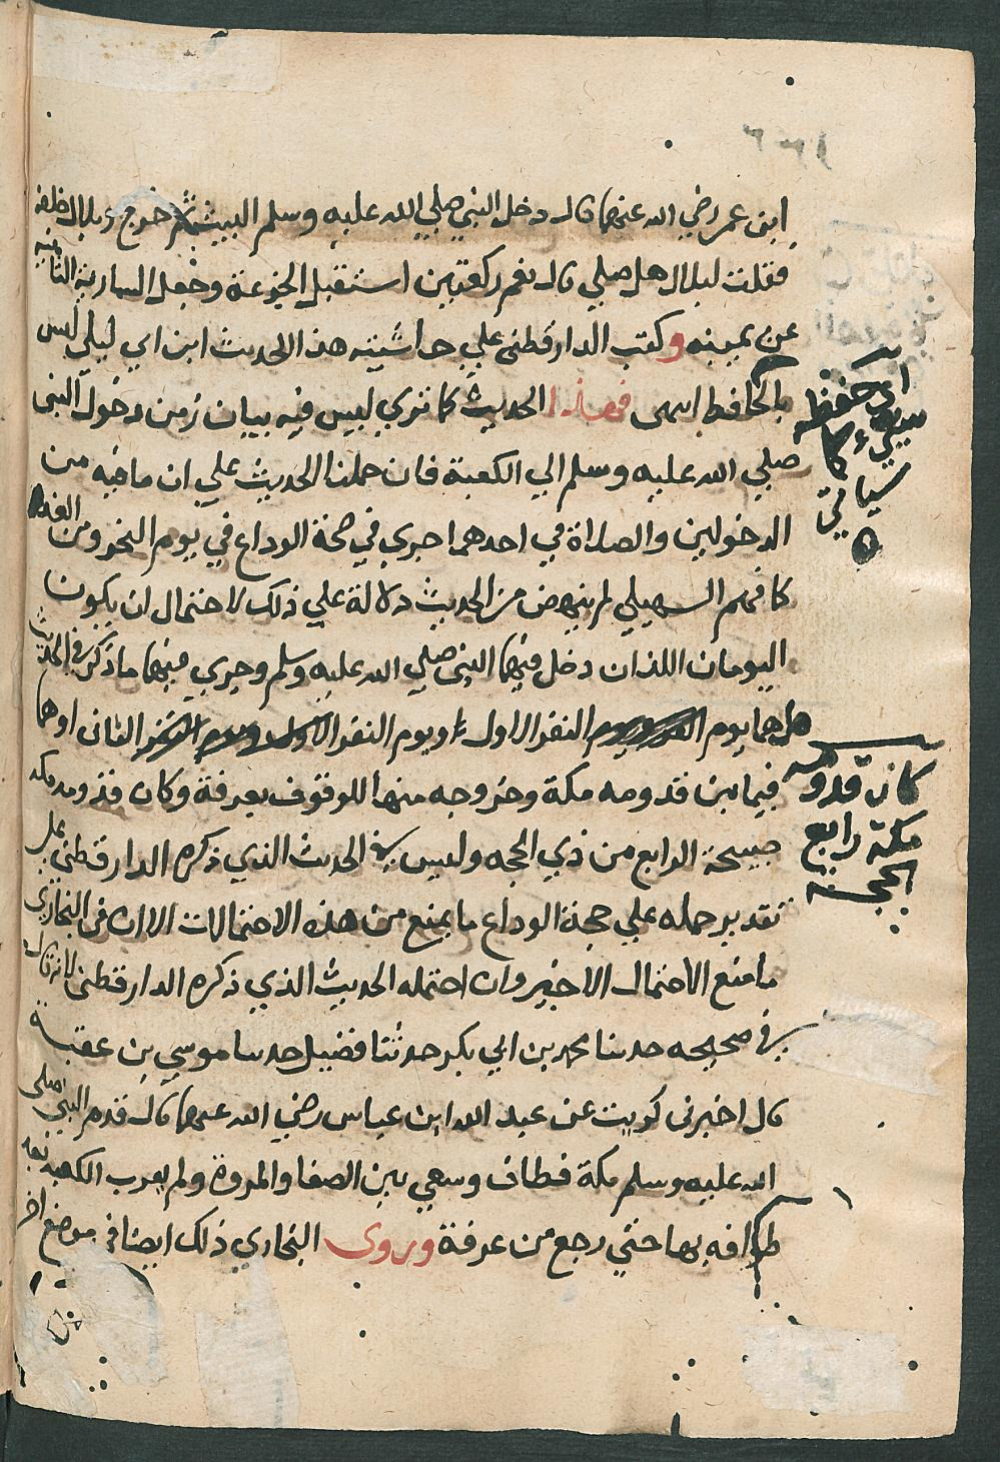 ابن عمر رضي الله عنهما قال دخل النبي صلي الله عليه وسلم البيت ثم خرج وبلال خلفه
فقلت لبلال هل صلي قال نعم ركعتين استقبل الجزعة وجعل السارية الثانية
عن يمينه وكتب الدارقطني علي حاشيته هذا الحديث ابن ابي ليلي ليس
بالحافظ انتهى فهذا الحديث كما تري ليس فيه بيان زمن دخول النبى
صلي الله عليه وسلم الي الكعبة فان حملنا الحديث علي ان ما فيه من
الدخولين والصلاة في احدهما جري في حجة الوداع في يوم النحر ومن الغد
كما فهم السهيلي لم ينهض من الحديث دلالة علي ذلك لاحتمال ان يكون
اليومان اللذان دخل فيهما النبى صلي الله عليه وسلم وجري فيهما ما ذكر في الحديث
هل هما يوم النفر الاول او يوم النفر الثانى او هما
فيما بين قدومه مكة وخروجه منها للوقوف بعرفة وكان قدومه مكه
صبيحة الرابع من ذي الحجه وليس في الحديث الذي ذكره الدارقطني علي
تقدير حمله علي حجة الوداع ما يمنع من هذه الاحتمالات الا ان في البخاري
ما منع الاحتمال الاخير وان احتمله الحديث الذي ذكره الدارقطنى لانه قال
في صحيحه حدثنا محمد بن ابي بكر حدثنا فضيل حدثنا موسي بن عقبة
قال اخبرنى كريب عن عبد الله ابن عباس رضي الله عنهما قال قدم النبي صلى
الله عليه وسلم مكة فطاف وسعي بين الصفا والمروة ولم يقرب الكعبه بعد
طوافه بها حتي رجع من عرفة وروى البخاري ذلك ايضا في موضع اخر
اي حفظه
سيئ كما
سياتي
كان قدومه
مكة رابع
الحجة